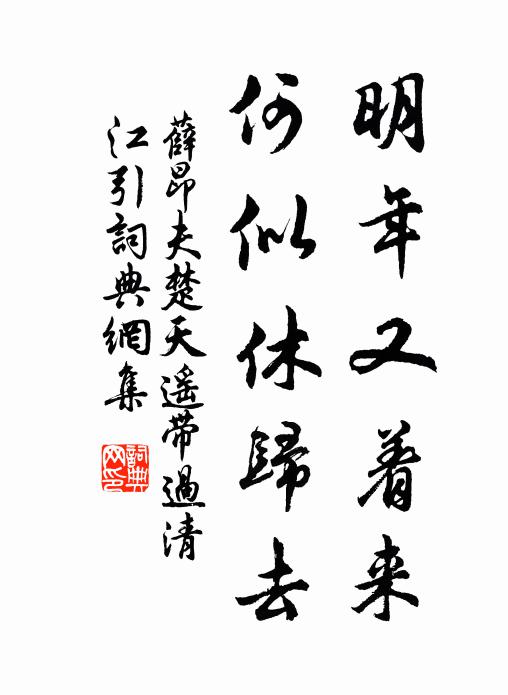 明年又着来
何似休歸去
薛昂夫楚天遥带過清
江引詞典網集
詞典
网印